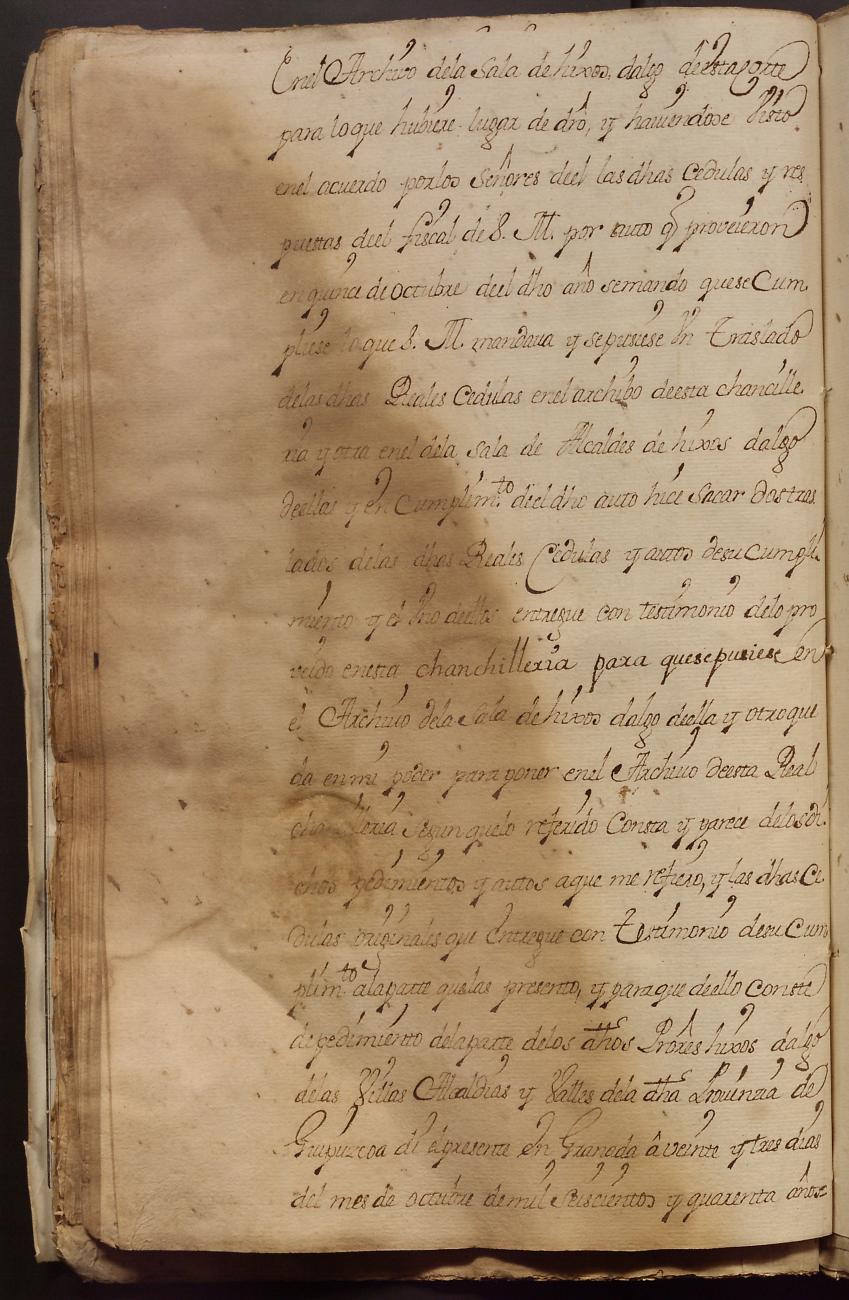 Enel Archivo dela Sala de hixos, dalgo deesta Corte
para lo que hubiere lugar de dro, y haviendose Visto
enel acuerdo por los Señores deel las dhas Cedulas y res
puestas deel fiscal de S. M. por auto q proveieron
en quince de octubre deel dho año semando que se Cum
pliese lo que S. M. mandava y se pusiese Un Traslado
delas dhas Reales Cedulas enel archibo deesta chancille
ria y otra enel dela Sala de Alcaldes de hixos dalgo
deellas y en Cumplim.to deel dho auto hice Sacar dos tras
lados delas dhas Reales Cedulas y autos desu Cumpli
miento y el Uno deellos entregue con testimonio delo pro
veido enesta chanchilleria para que se pusiese en
el Archivo dela Sala de hixos dalgo deella y otro que
da en mi poder para poner enel Archivo deesta Real
chancilleria Segun que lo referido Consta y parece delos di
chos pedimientos y autos a que me refiero, y las dhas Ce
dulas originales que Entregue con Testimonio desu Cum
plim.to ala parte que las presento, y para que deello Conste
de pedimiento dela parte delos dhos Prores hixos dalgo
delas Villas Alcaldias y Valles dela dha Provinzia de
Guipuzcoa di el presente En Granada â veinte y tres dias
del mes de octubre de mil Seiscientos y quarenta años=